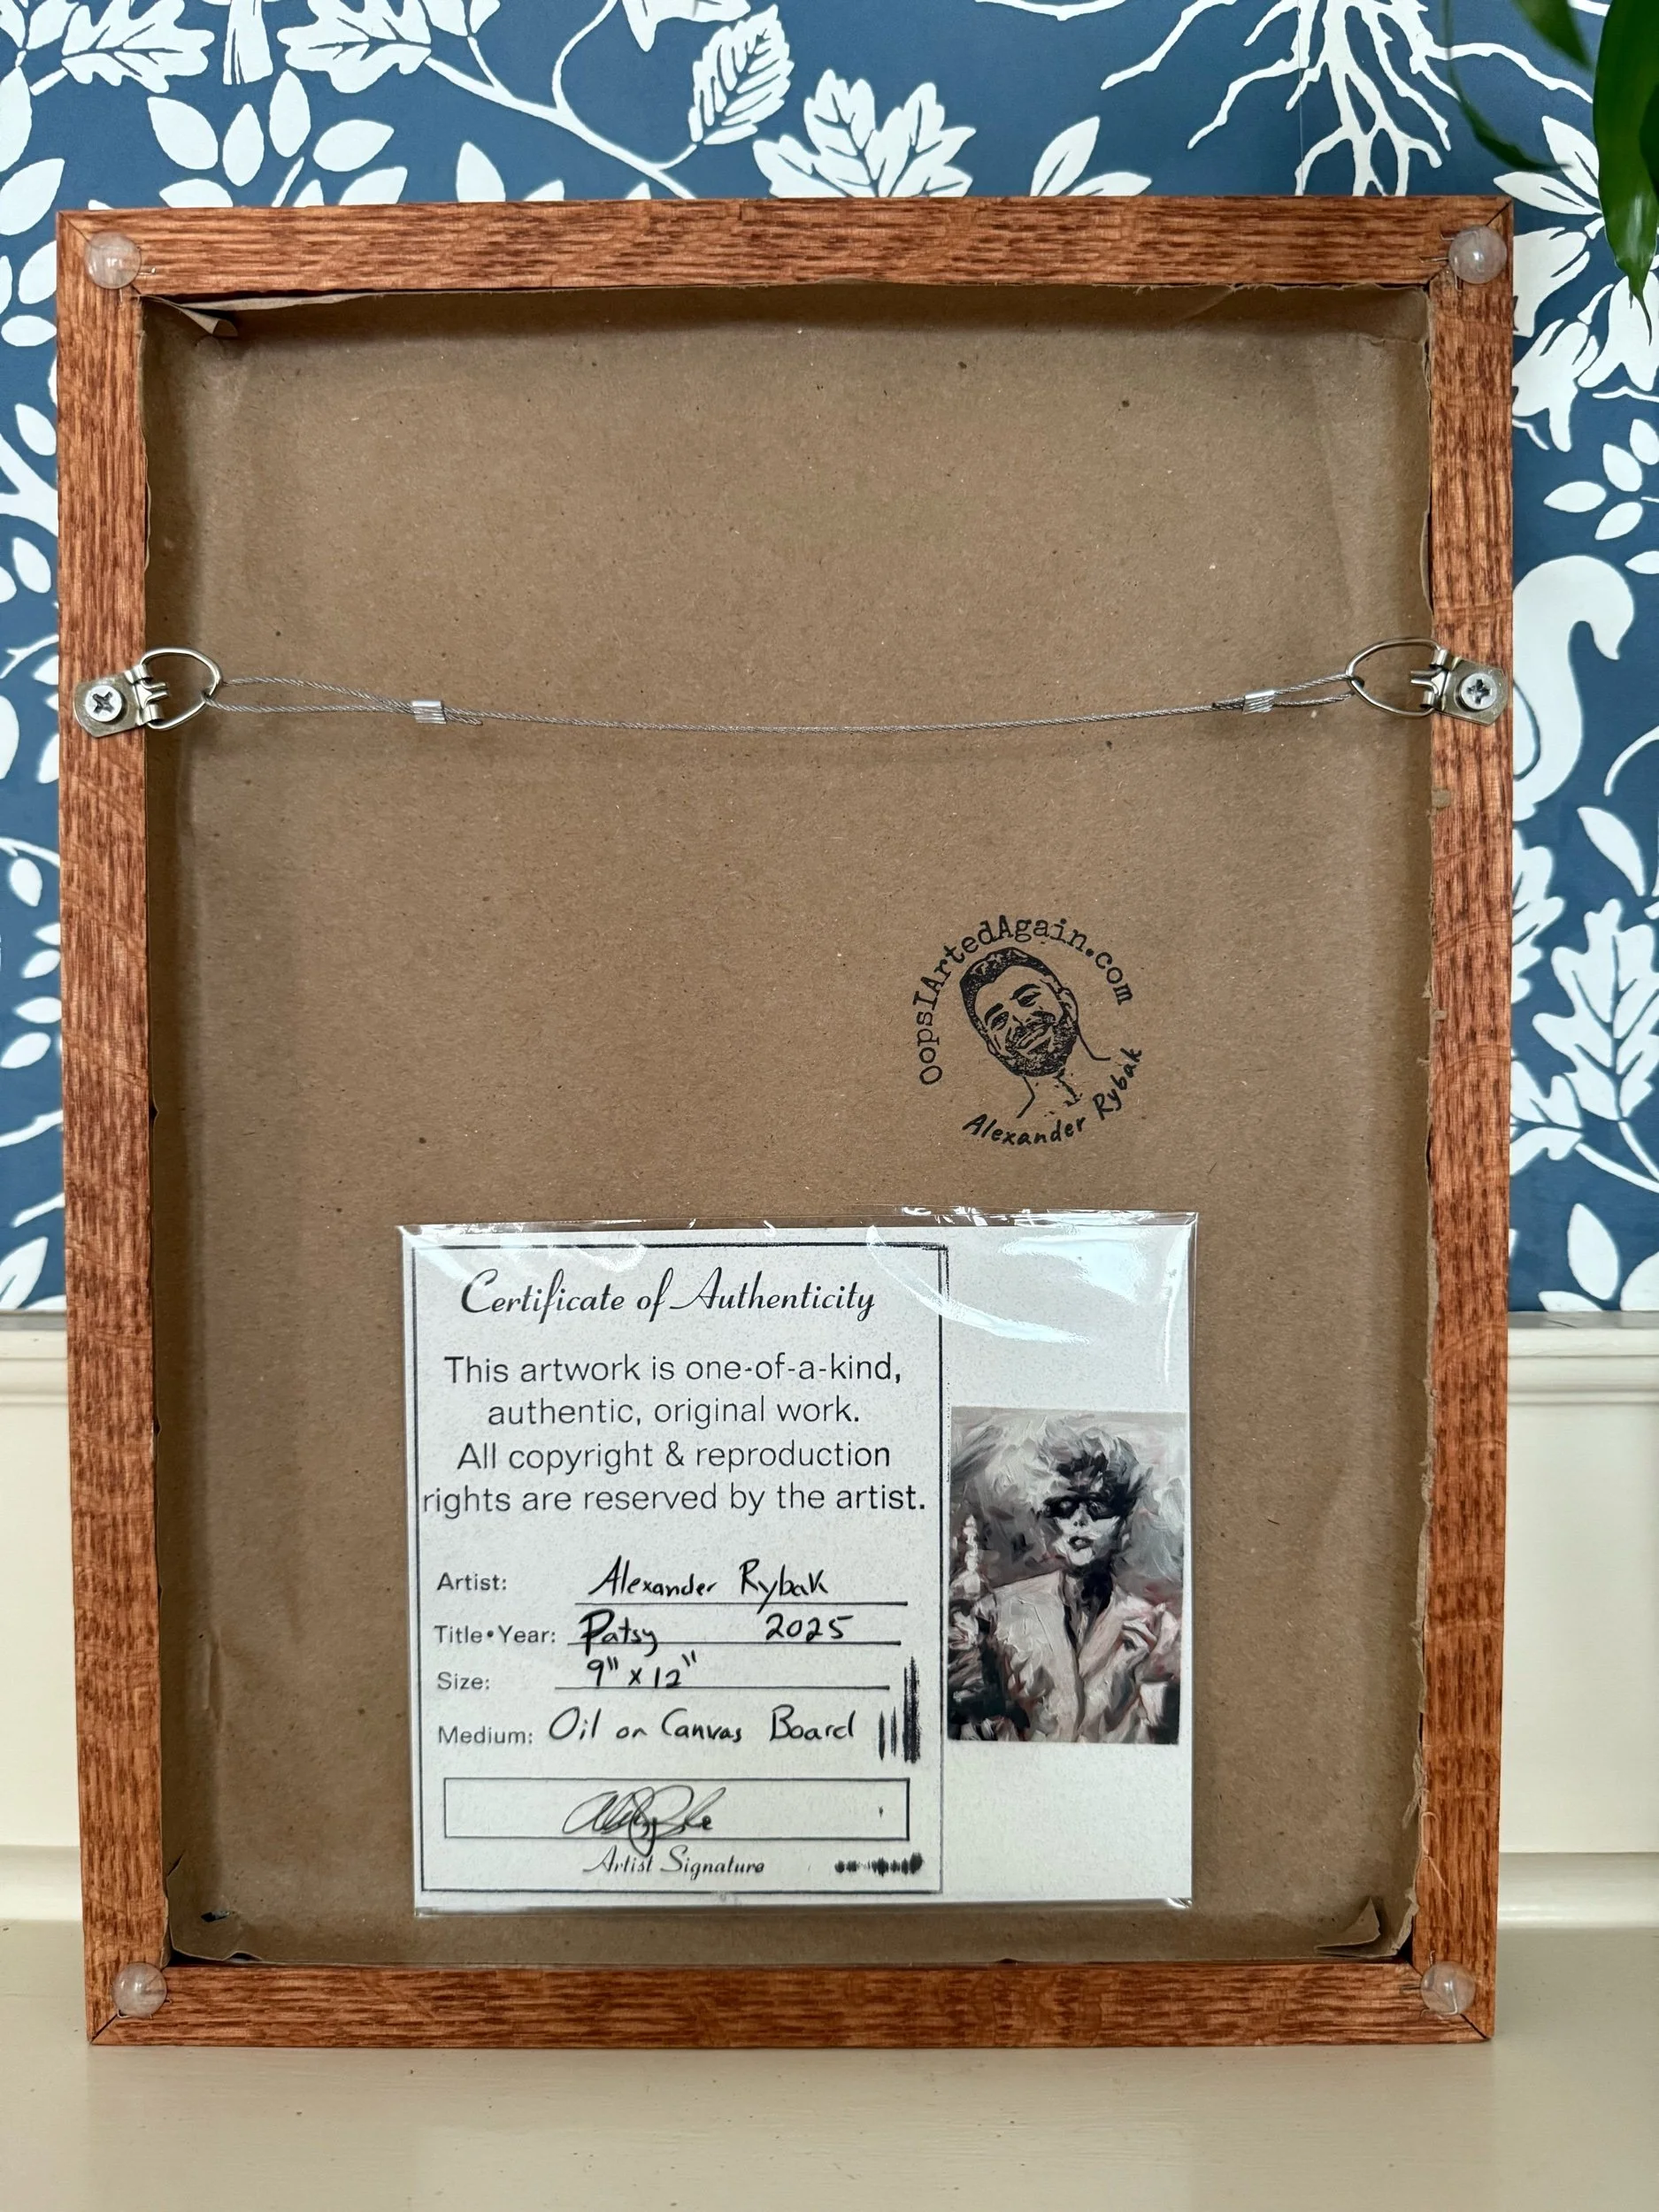 OopsIArtedAgain.com
Alexander Rybak
Certificate of Authenticity
This artwork is one-of-a-kind,
authentic, original work.
All copyright & reproduction
rights are reserved by the artist.
Artist: Alexander Rybak
Title•Year: Patsy 2025
Size: 9" x 12"
Medium: Oil on Canvas Board
Artist Signature